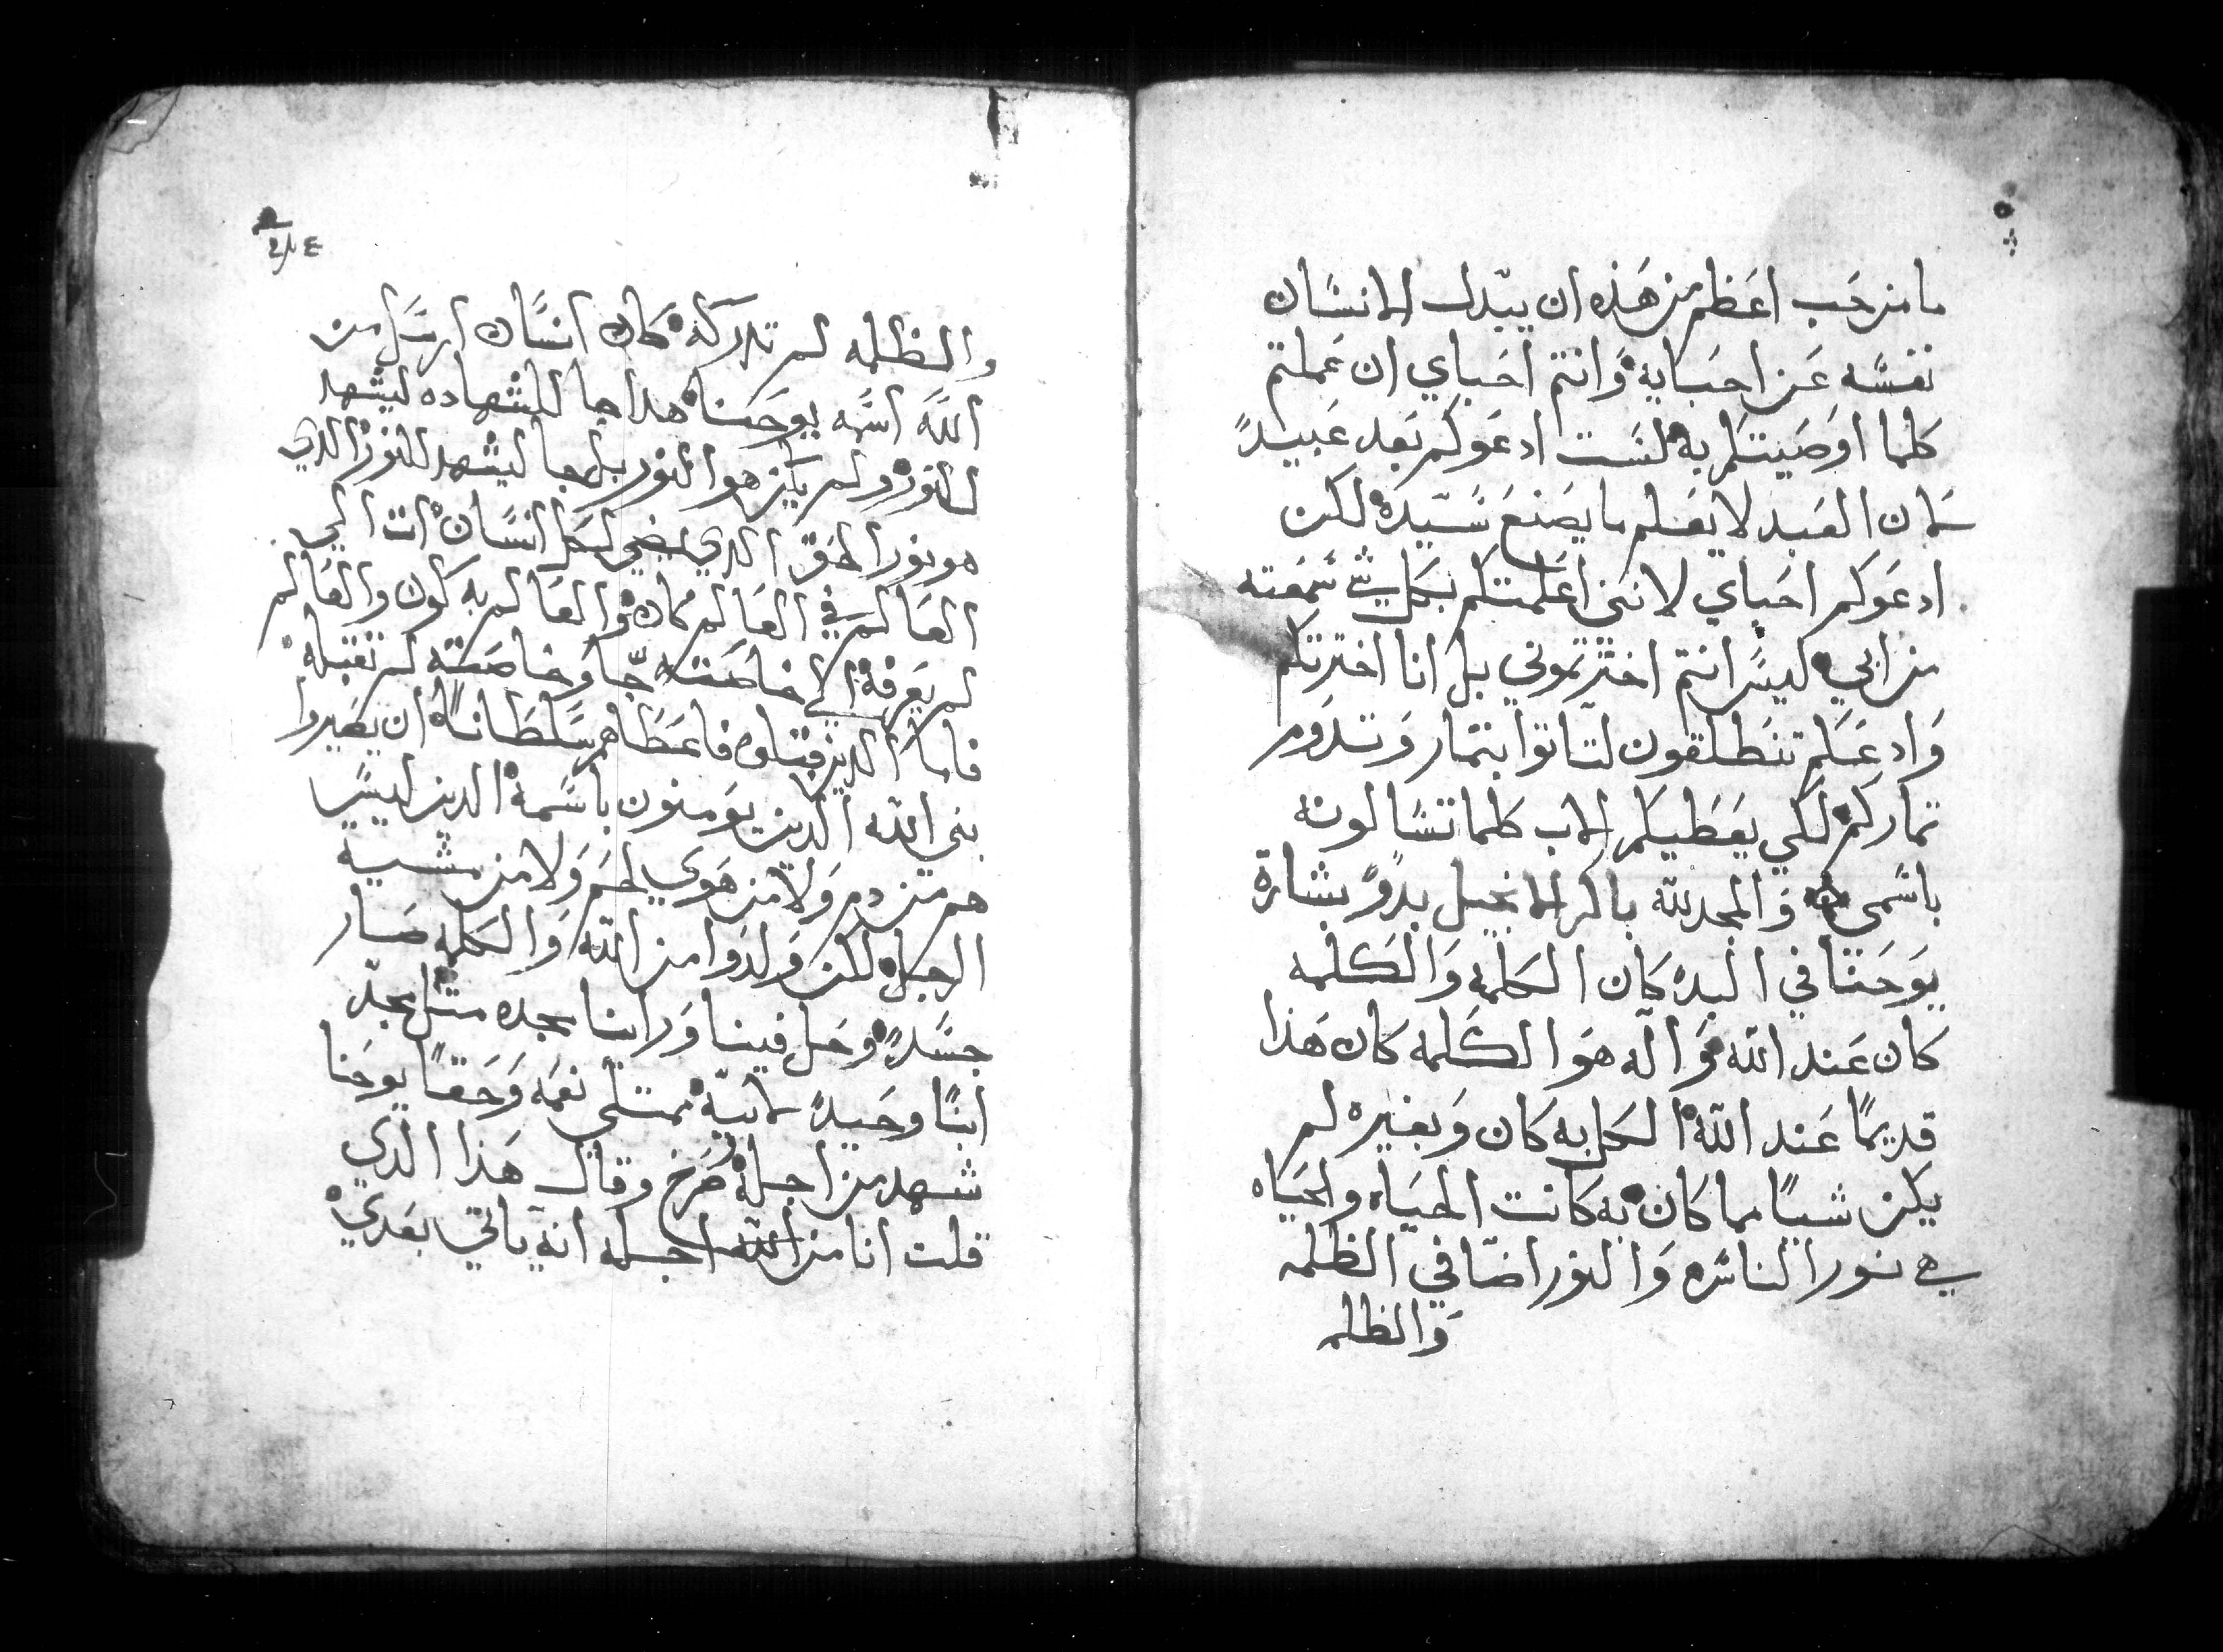 ما من حب اعظم من هذه ان يبدل الانسان
نفسه عن احبايه وانتم احباي ان عملتم
كلما اوصيتكم به لست ادعوكم بعد عبيدً
لان العبد لا يعلم ما يصنع سيده لكن
ادعوكم احباي لانني اعلمتكم بكل شي سمعته
من ابي ليس انتم اخترتموني بل انا اخترتكم
وادعكم تنطلقون لتاتوا بتمار وتدوم
تماركم لكي يعطيكم الاب كلما تسالونه
باسمي والمجد لله باكر الانجيل بدوً بشارة
يوحنا في البدء كان الكلمه والكلمه
كان عند الله واله هو الكلمه كان هذا
قديمًا عند الله الكل به كان وبغيره لم
يكن شيًا مما كان به كانت الحياه والحياه
هي نور الناس والنور اضا في الظلمه
والظلمه
والظلمه لم تدركه كان انسان ارسل من
الله اسمه يوحنا هدا جا للشهاده ليشهد
للنور ولم يكن هو النور بل جا ليشهد للنور الدي
هو نور الحق الدي يضي لكل انسان ات الي
العالم في العالم كان والعالم به كون والعالم
لم يعرفه الي خاصته جا وخاصته لم تقبله
فاما الدين قبلوه فاعطاهم سلطانًا ان يصيروا
بني الله الدين يومنون باسمه الدين ليس
هم من دم ولا من هوي لحم ولا من مشية
الرجل لكن ولدوا من الله والكلمه صار
جسدً وحل فينا وراينا مجده مثل مجد
ابنًا وحيدً لابيه ممتلي نعمه وحقًا يوحنا
شهد من اجله صرخ وقال هذا الدي
قلت انا من الله اجله انه ياتي بعدي